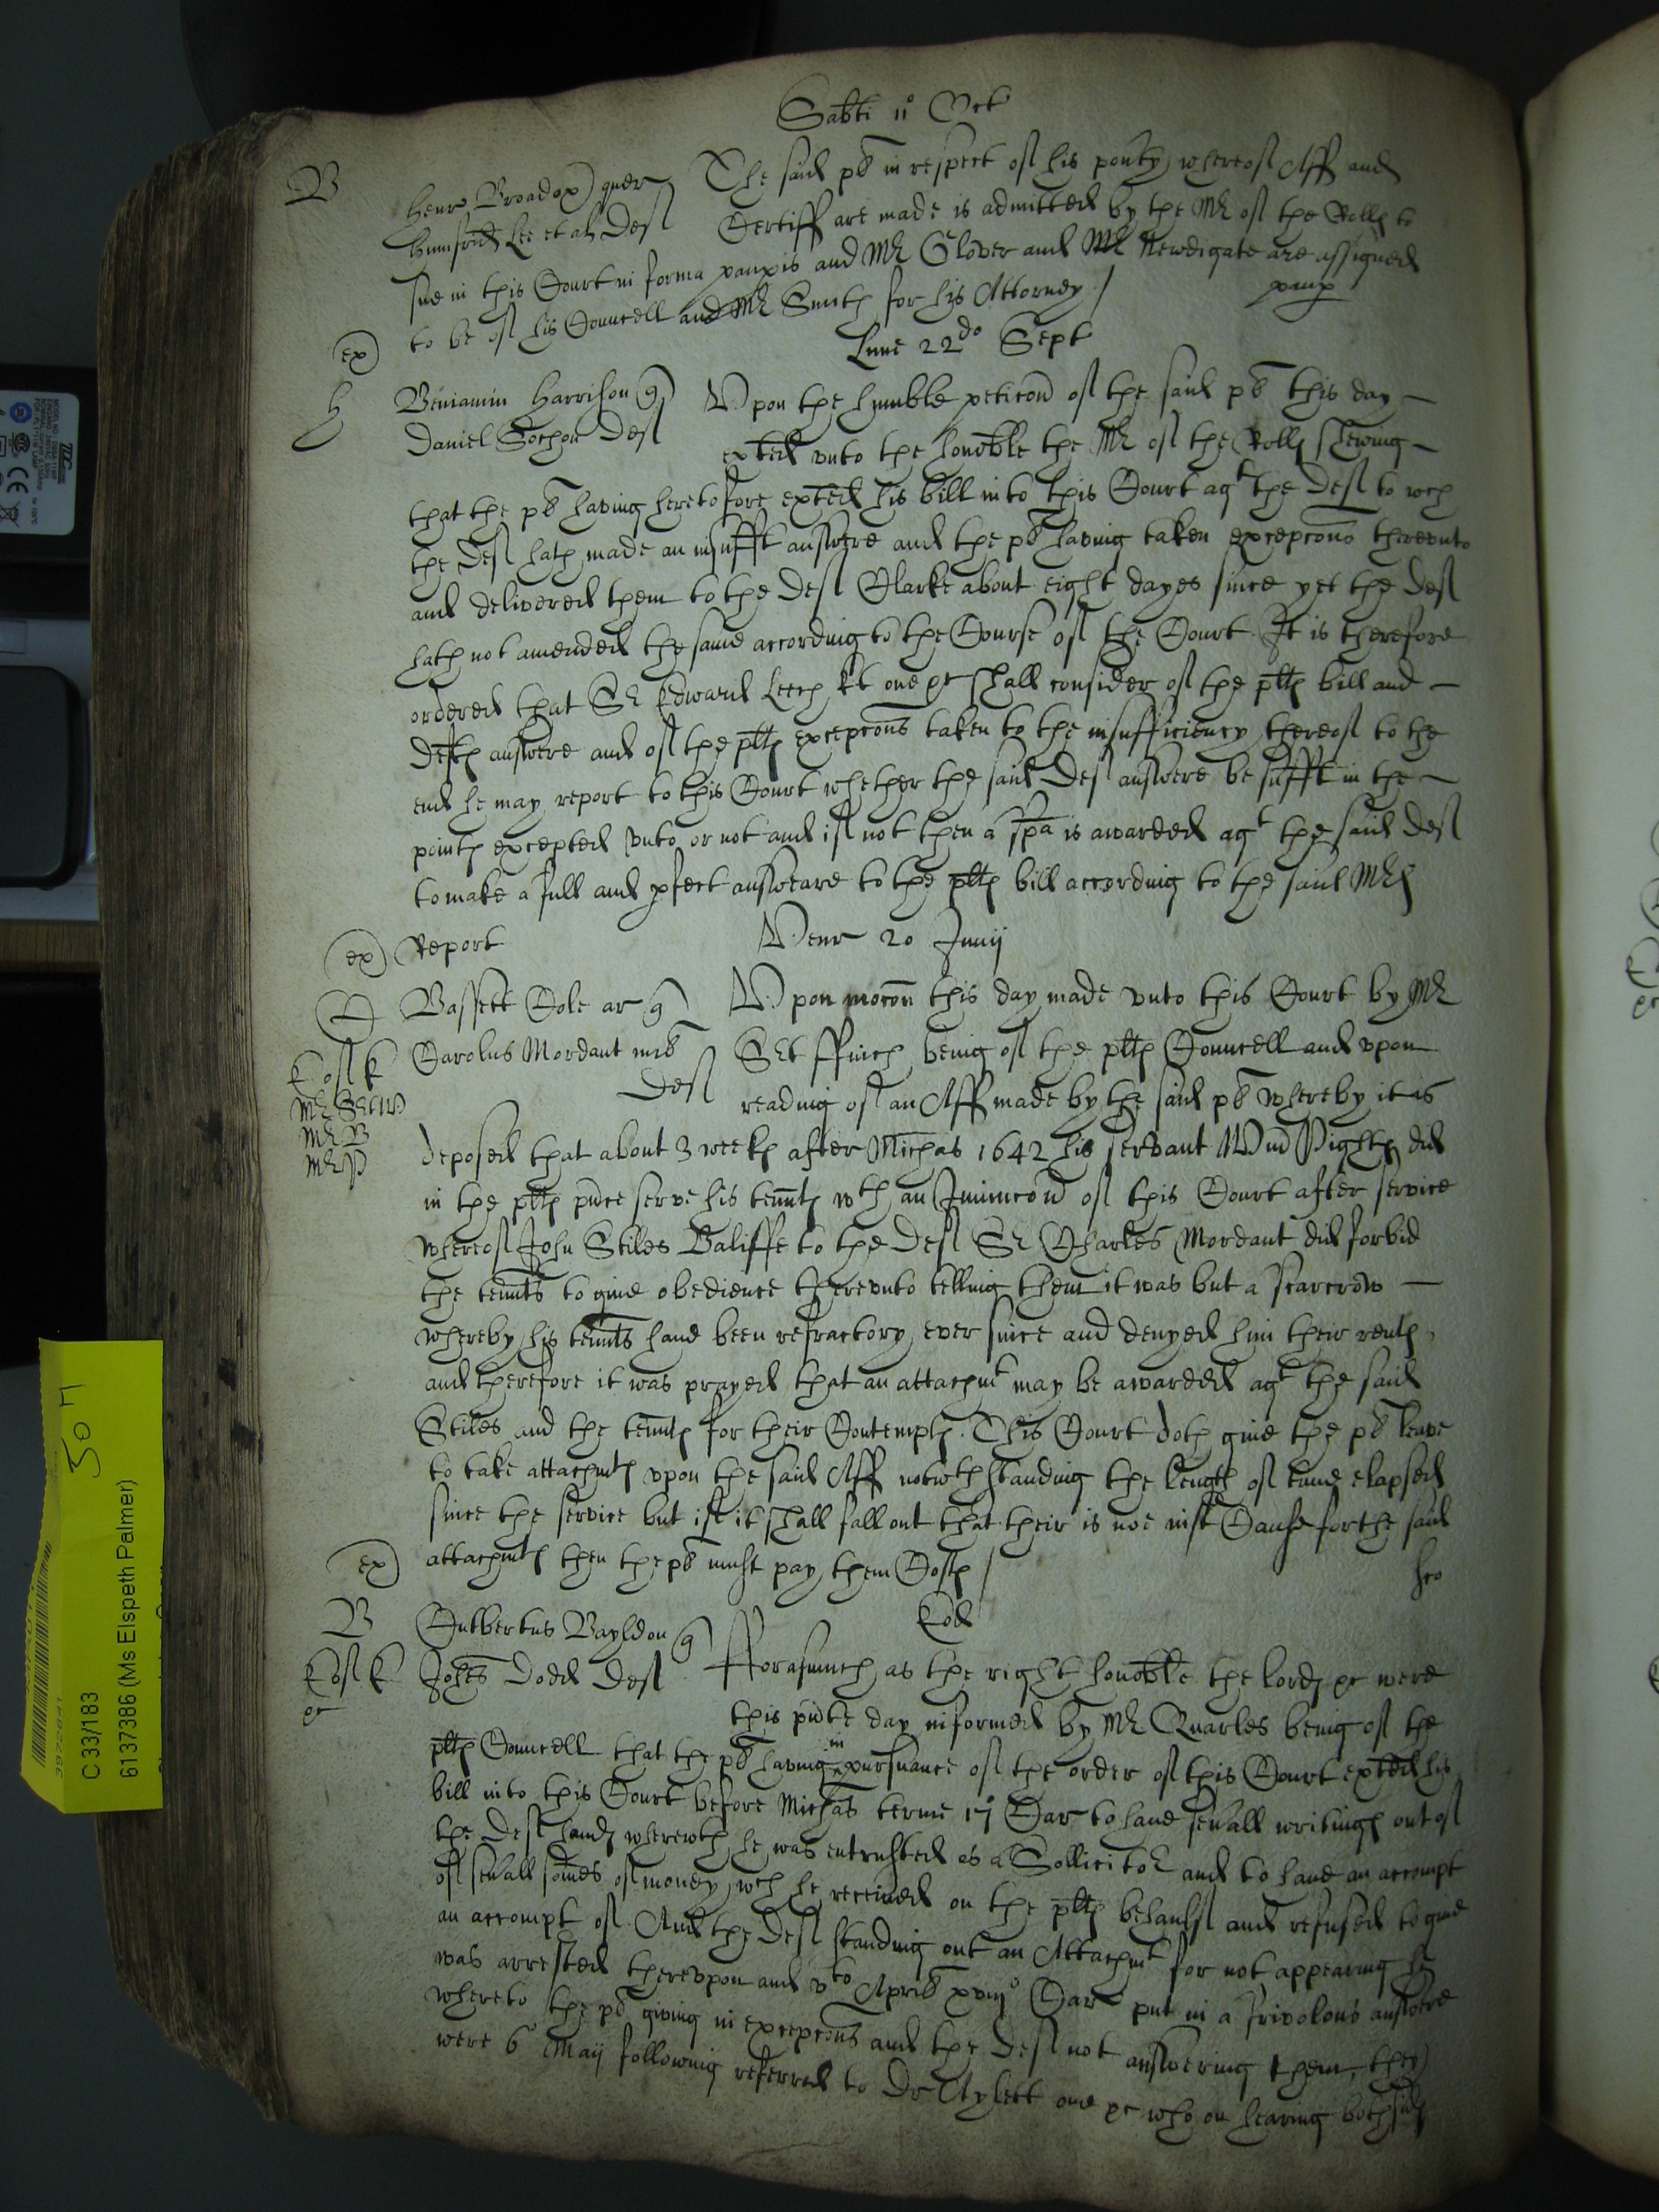 Sabti 11o Oct
B
Henr Broadox quer The said pl in respect of his povty whereof Aff and
Humfrid Lee et al Def Certiff are made is admitted by the Mr of the Rolls to
sue in this Court in forma paupis and Mr Glover and Mr Newdigate are assigned
to be of his Councell and Mr Smith for his Attorney / paup
ex
Lune 22do Sept
H
Beniamin Harrison q Vpon the humble peticon of the said pl this day
Daniel Def exted vnto the honoble the Mr of the Rolls shewing
that the pl having heretofore exted his bill into this Court agt the Def to wch
the Def hath made an insufft answere and the pl having taken excepcons therevnto
and delivered them to the Def Clarke about eight dayes since yet the Def
hath not amended the same according to the Course of the Court. It is therefore
ordered that Sr Edward Leech kt one &c shall consider of the plts bill and
Defts answere and of the plts excepcons taken to the insufficiency thereof to the
end he may report to this Court whether the said Def answere be sufft in the
points excepted vnto or not and if not then a spa is awarded agt the said Def
to make a full and pfect answeare to the plts bill according to the said Mrs
ex Report Venr 20 Junij
C
Bassett Cole ar q Vpon mocon this day made vnto this Court by Mr
Carolus Mordant mil Srt ffinch being of the plts Councell and vpon
Def reading of an Aff made by the said pl whereby it is
Mr B
Mr P
deposed that about 3 weeks after Michas 1642 his servant Wm Pights did
in the plts pnce serve his tennts wth an Iniunccon of this Court after service
whereof John Stiles Baliffe to the Def Sr Charles Mordant did forbid
the tennts to give obedience therevnto telling them it was but a scarcrow
whereby his tennts have been refractory ever since and denyed him their rents,
and therefore it was prayed that an attachmt may be awarded agt the said
Stiles and the tennts for their Contempts. This Court doth give the pl leave
to take attachmts vpon the said Aff notwthstanding the length of time elapsed
since the service but if it shall fall out that their is noe iust Cause for the said
ex attachmts then the pl must pay them Costs /
Eod
B
Cutbertus Bayldon q fforasmuch as the right honoble the lords &c were
Johes Dodd Def this pnte day informed by Mr Quarles being of the
&c
plts Councell that the pl having in pursuance of the order of this Court exted his
bill into this Court before Michas terme 17 Car to have sevall writings out of
the Defts hands wherewth he was entrusted as a Sollicitor and to have an accompt
of sevall somes of money wch he received on the plts behaulf and refused to give
an accompt of. And the Def standing out an Attachmt for not appearing he
was arrested therevpon and vto April xviijo Car put in a frivolous answere
whereto the pl giving in excepcons and the Def not answering them, they
were 6 Maij following referred to Dr Aylett one &c who on hearing both sides
C 33/183
6137386 (Ms Elspeth Palmer)